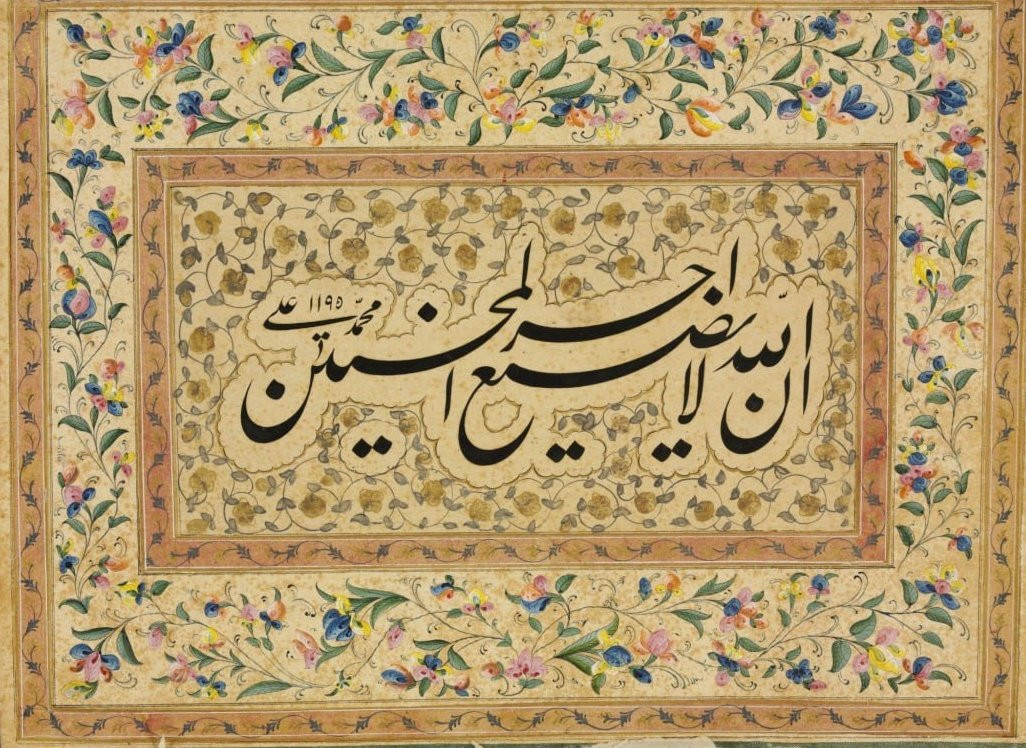 ان الله لا یضیع اجر المحسنین
محمد علی ۱۱۹۵